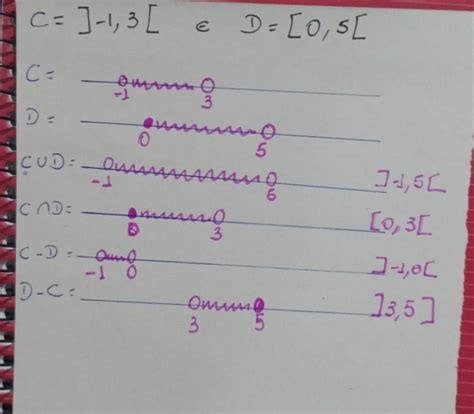 C = ]-1, 3 [ e D = [0, 5[
C =
-1 3
D =
0 5
C∪D =
-1 6 ]-1, 5[
C∩D =
0 3 [0, 3[
C-D =
-1 0 ]-1, 0[
D-C =
3 5 ]3, 5]